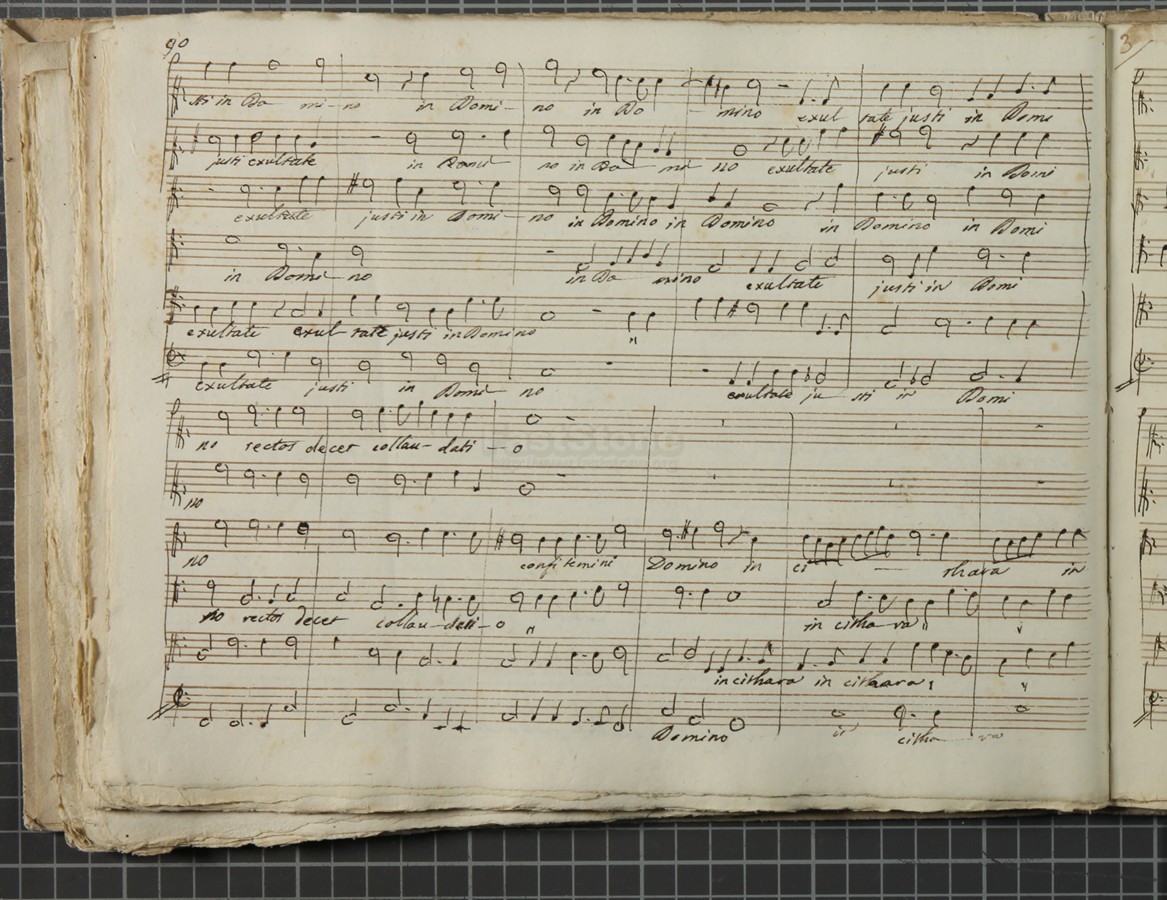 90
3
sti in Do mi - no in Domi - no in Do mino exul tate justi in Domi
justi exultate in Domi no in Do mi no exultate justi in Domi
exultate justi in Domi - no in Domino in Domino in Domino in Domi
in Domi - no in Do mino exultate justi in Domi
exultate exul tate justi in Domino
exultate justi in Domi no exultate ju sti in Domi
no rectos decet collau - dati - o
no
no confitemini Domino in ci thara in
no rectos decet collau - dati - o in citha ra
in cithara in cithara
Domino in citha ra